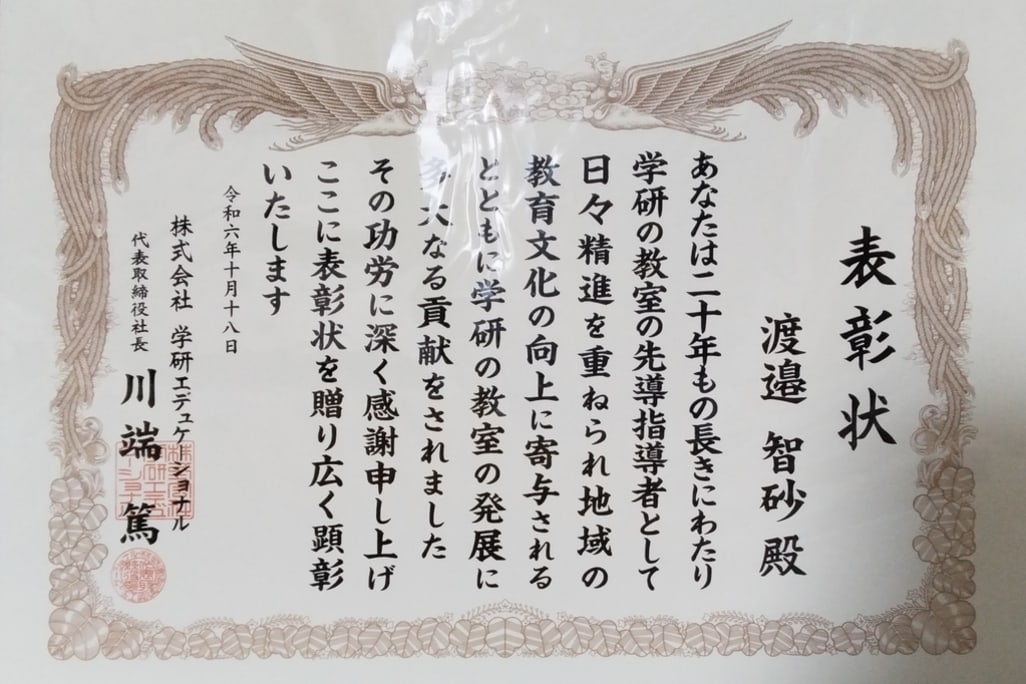 表彰状
渡邉 智砂 殿
あなたは二十年もの長きにわたり
学研の教室の先導指導者として
日々精進を重ねられ地域の
教育文化の向上に寄与される
とともに学研の教室の発展に
多大なる貢献をされました
その功労に深く感謝申し上げ
ここに表彰状を贈り広く顕彰
いたします
令和六年十月十八日
株式会社 学研エデュケーショナル
代表取締役社長 川端 篤